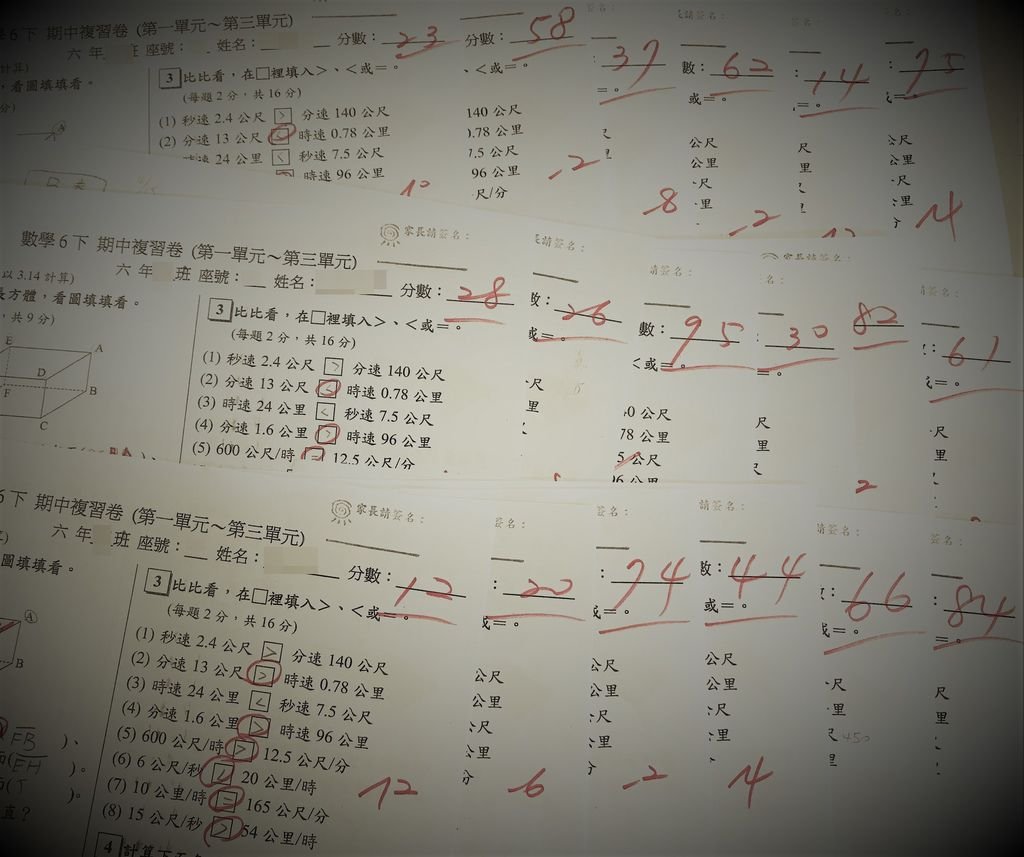 6下 期中複習卷 (第一單元～第三單元)
六 年 班 座號： 姓名： 分數：23 分數：58 37 數：62 ：14 ：75
計算)
3 比比看，在□裡填入＞、＜或＝。 、＜或＝。 ＝。 或＝。
，看圖填填看。
(每題 2 分，共 16 分)
(1) 秒速 2.4 公尺 > 分速 140 公尺 140 公尺
(2) 分速 13 公尺 時速 0.78 公里 0.78 公里 公尺 尺
時速 24 公里 < 秒速 7.5 公尺 7.5 公尺 公里
時速 96 公里 96 公里
尺/分
-2
8 -2 -4
數學 6 下 期中複習卷 (第一單元～第三單元) 家長請簽名：
六 年 班 座號： 姓名： 分數：28 26 數：95 30 82 61
以 3.14 計算)
長方體，看圖填填看。
，共 9 分)
3 比比看，在□裡填入＞、＜或＝。
(每題 2 分，共 16 分)
E A D F B C
(1) 秒速 2.4 公尺 > 分速 140 公尺
(2) 分速 13 公尺 < 時速 0.78 公里
(3) 時速 24 公里 < 秒速 7.5 公尺
(4) 分速 1.6 公里 > 時速 96 公里
(5) 600 公尺/時 = 12.5 公尺/分
6下 期中複習卷 (第一單元～第三單元) 家長請簽名：
六 年 班 座號： 姓名： 分數：12 ：20 ：74 數：44 66 ：84
圖填填看。
3 比比看，在□裡填入＞、＜或＝。
(每題 2 分，共 16 分)
(1) 秒速 2.4 公尺 > 分速 140 公尺
(2) 分速 13 公尺 > 時速 0.78 公里
(3) 時速 24 公里 < 秒速 7.5 公尺
(4) 分速 1.6 公里 > 時速 96 公里
(5) 600 公尺/時 > 12.5 公尺/分
(6) 6 公尺/秒 20 公里/時
(7) 10 公里/時 = 165 公尺/分
(8) 15 公尺/秒 > 54 公里/時
-12 -6 -2 -4
FB )、
EH )。
直？
4